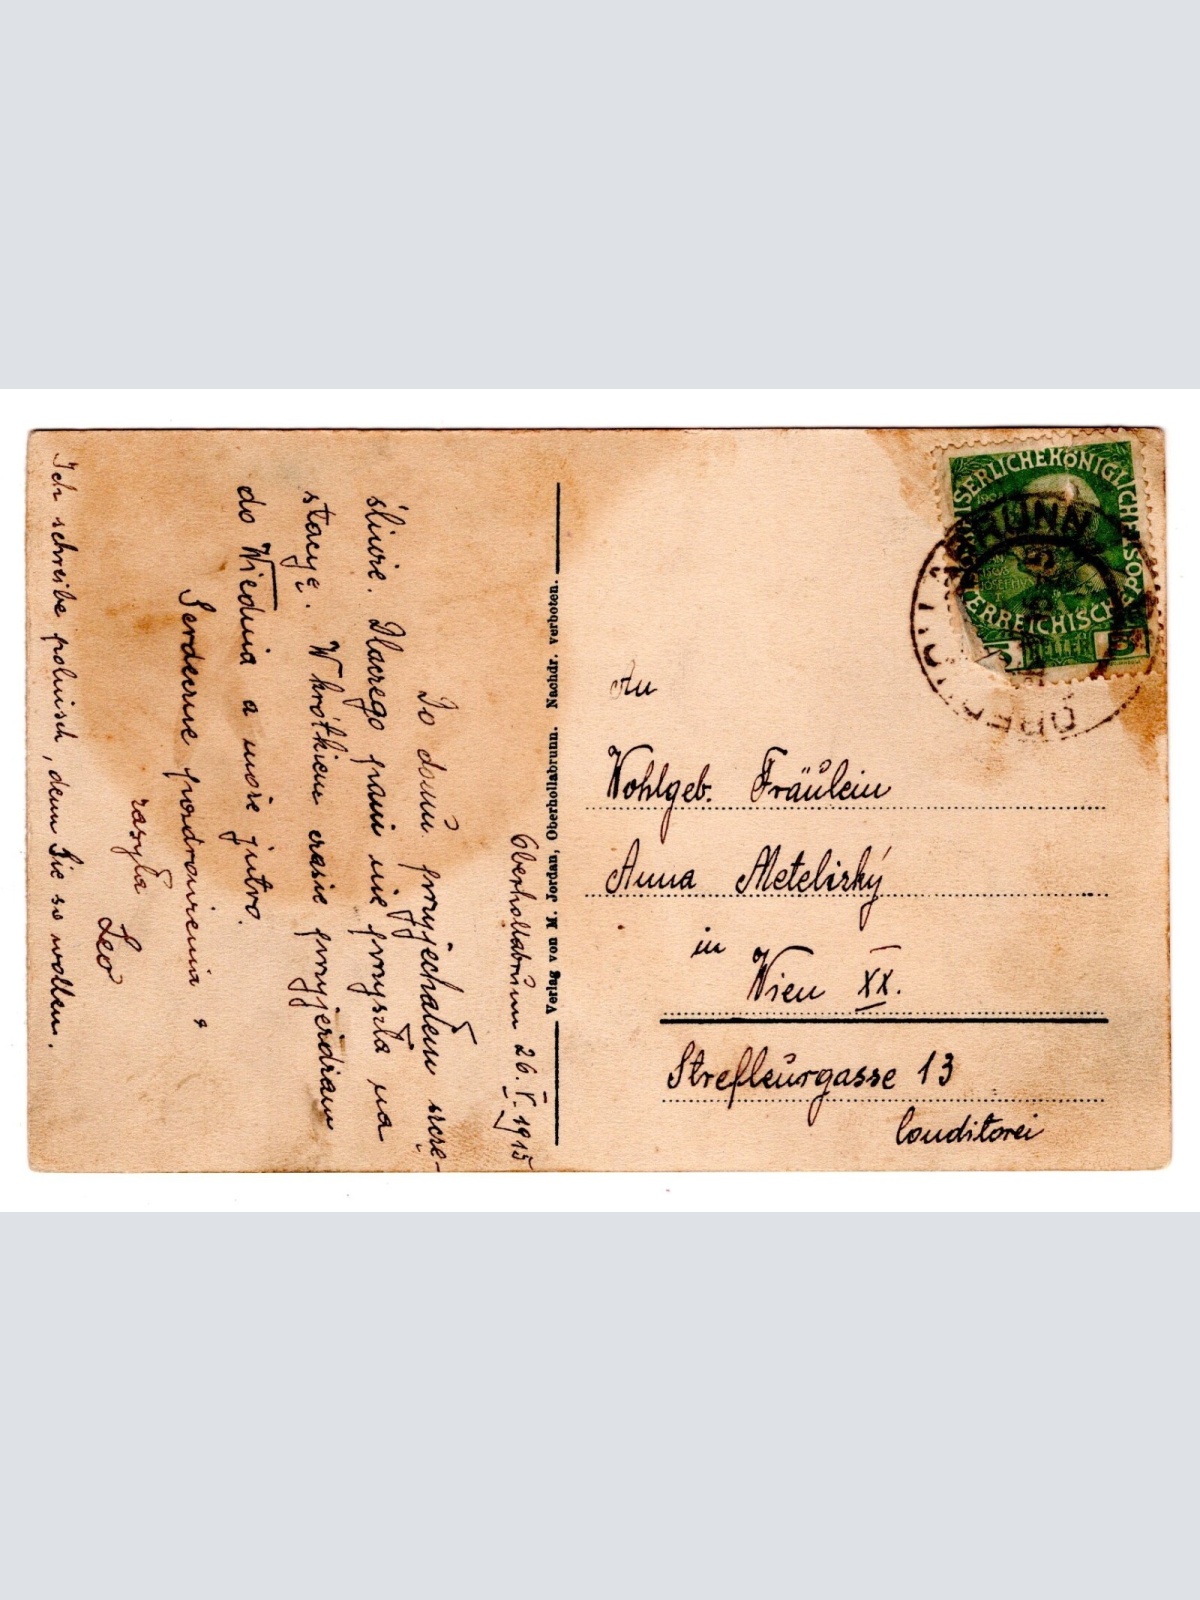 Oberhollabrunn 26. V. 1915
Do domu przyjechałem szczę-
śliwie. Dlaczego pani nie przyszła na
stacyę. W krótkiem czasie przyjerdiam
do Wiednia a może jutro.
Serdeczne pozdrowienia
zasyła
Leo
Ich schreibe polnisch, denn Sie so wollen.
Verlag von M. Jordan, Oberhollabrunn. Nachdr. verboten.
An
Wohlgeb. Fräulein
Anna Metelizký
in
Wien XX.
Strefleurgasse 13
Conditorei
KAISERLICHE KÖNIGLICHE
ÖSTERREICHISCHE POST
1908
HELLER
5